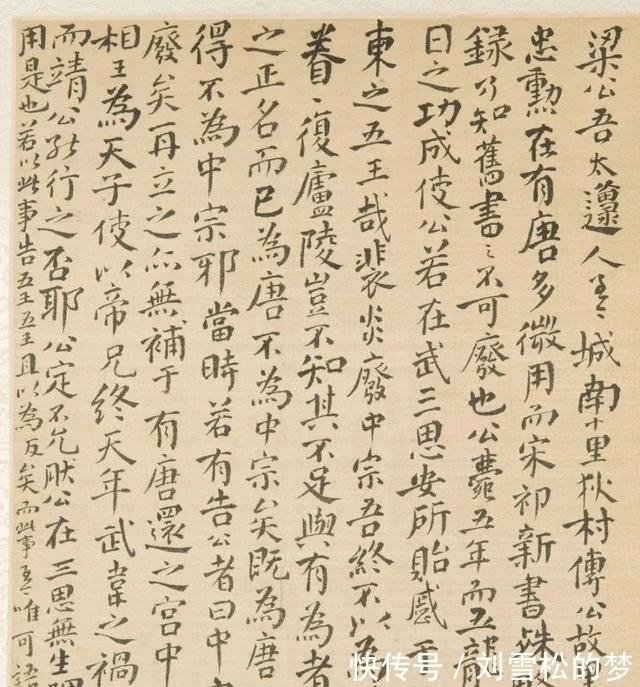 梁公吾太邍人城南十里狄村傳公故
忠勳在有唐多微用而宋祁新書
録乃知舊書〻不可廢也公薨五年而五龍
日之功成使公若在武三思安所貽慼
東之五王哉裴炎廢中宗吾終不以為
眷〻復廬陵豈不知其不足與有為者
之正名而已為唐不為中宗矣既為唐
得不為中宗邪當時若有告公者曰中宗
廢矣再立之亦無補于有唐還之宮中
相王為天子使以帝兄終天年武韋之禍
而靖公能行之否耶公定不允公在三思無生理
用是也若以此事告五王五王且以為反矣而此事唯可語
快传号/刘雪松的梦